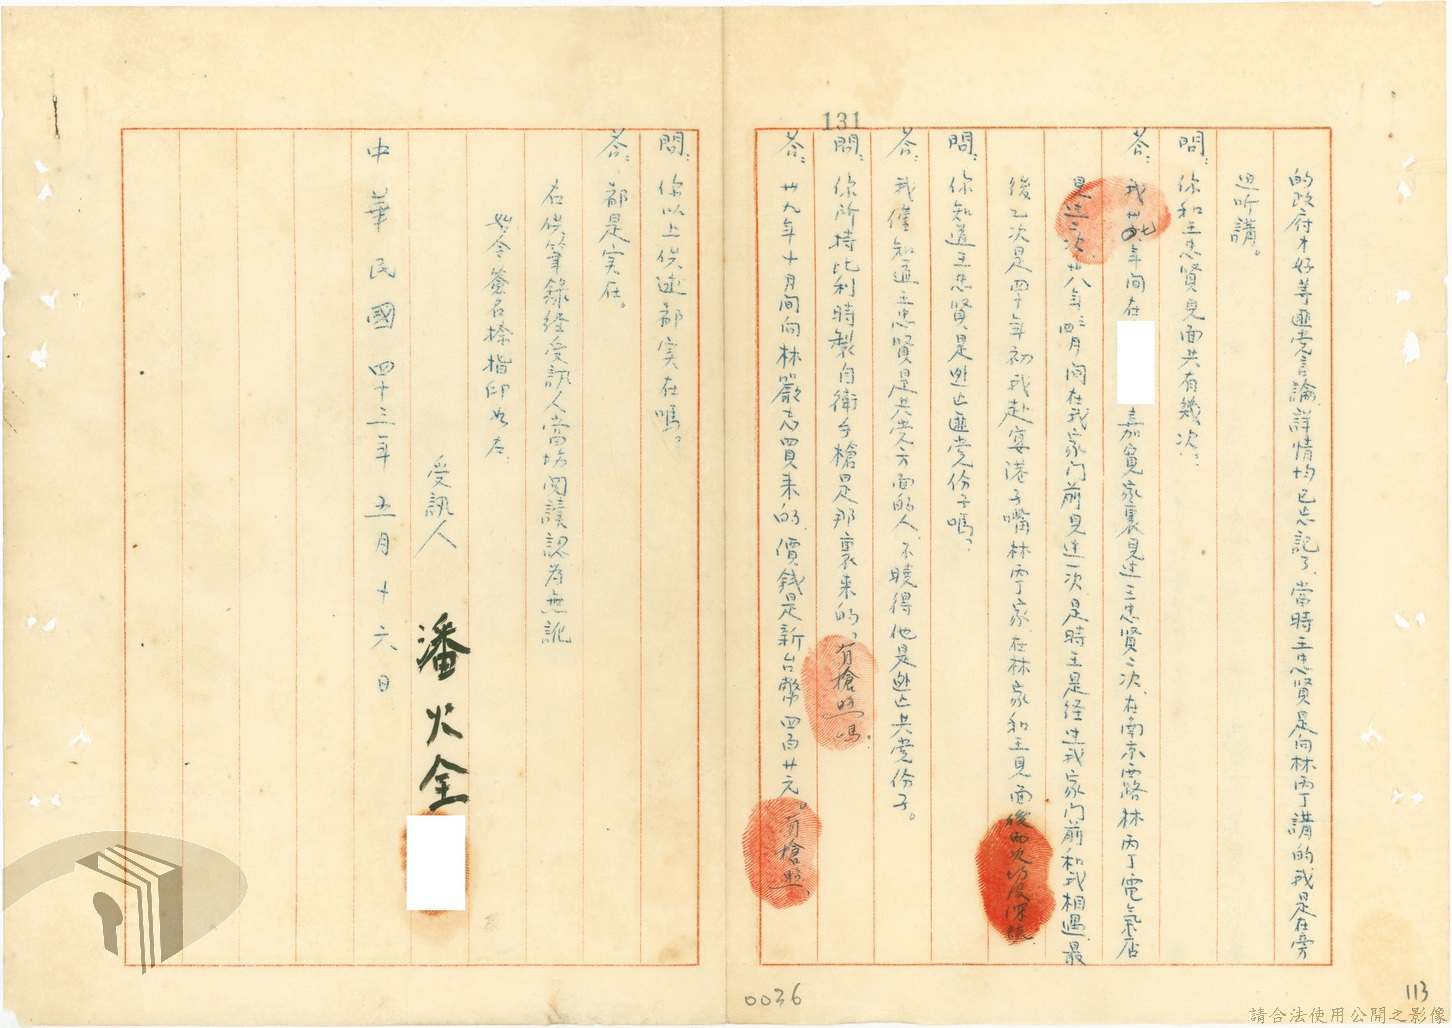 131
的政府才好等匪党言論詳情均已忘記了，當時王忠賢是向林丙丁講的我是在旁
边听講。
問：你和王忠賢見面共有幾次？
答：我卅七年间在
嘉寬家裏見过王忠賢二次，在南京西路林丙丁電氣店
見过二次，卅八年三四月间在我家门前見过一次是時王是经过我家门前和我相遇，最
後乙次是四十年初我赴宴港子嘴林丙丁家，在林家和王見面後兩次均没深談。
問：你知道王忠賢是逃亡匪党份子嗎？
答：我僅知道王忠賢是共党方面的人，不曉得他是逃亡共党份子。
問：你所持比利時製自衛手槍是那裏来的，有槍照嗎？
答：廿九年十月间向林嚴志買来的，價錢是新台幣四百廿元。有槍照。
問：你以上供述都实在嗎？
答：都是实在。
右供筆錄经受訊人當场閱讀認为無訛
始令簽名捺指印如左：
受訊人 潘火全
中華民國四十三年五月十六日
0036
113
請合法使用公開之影像